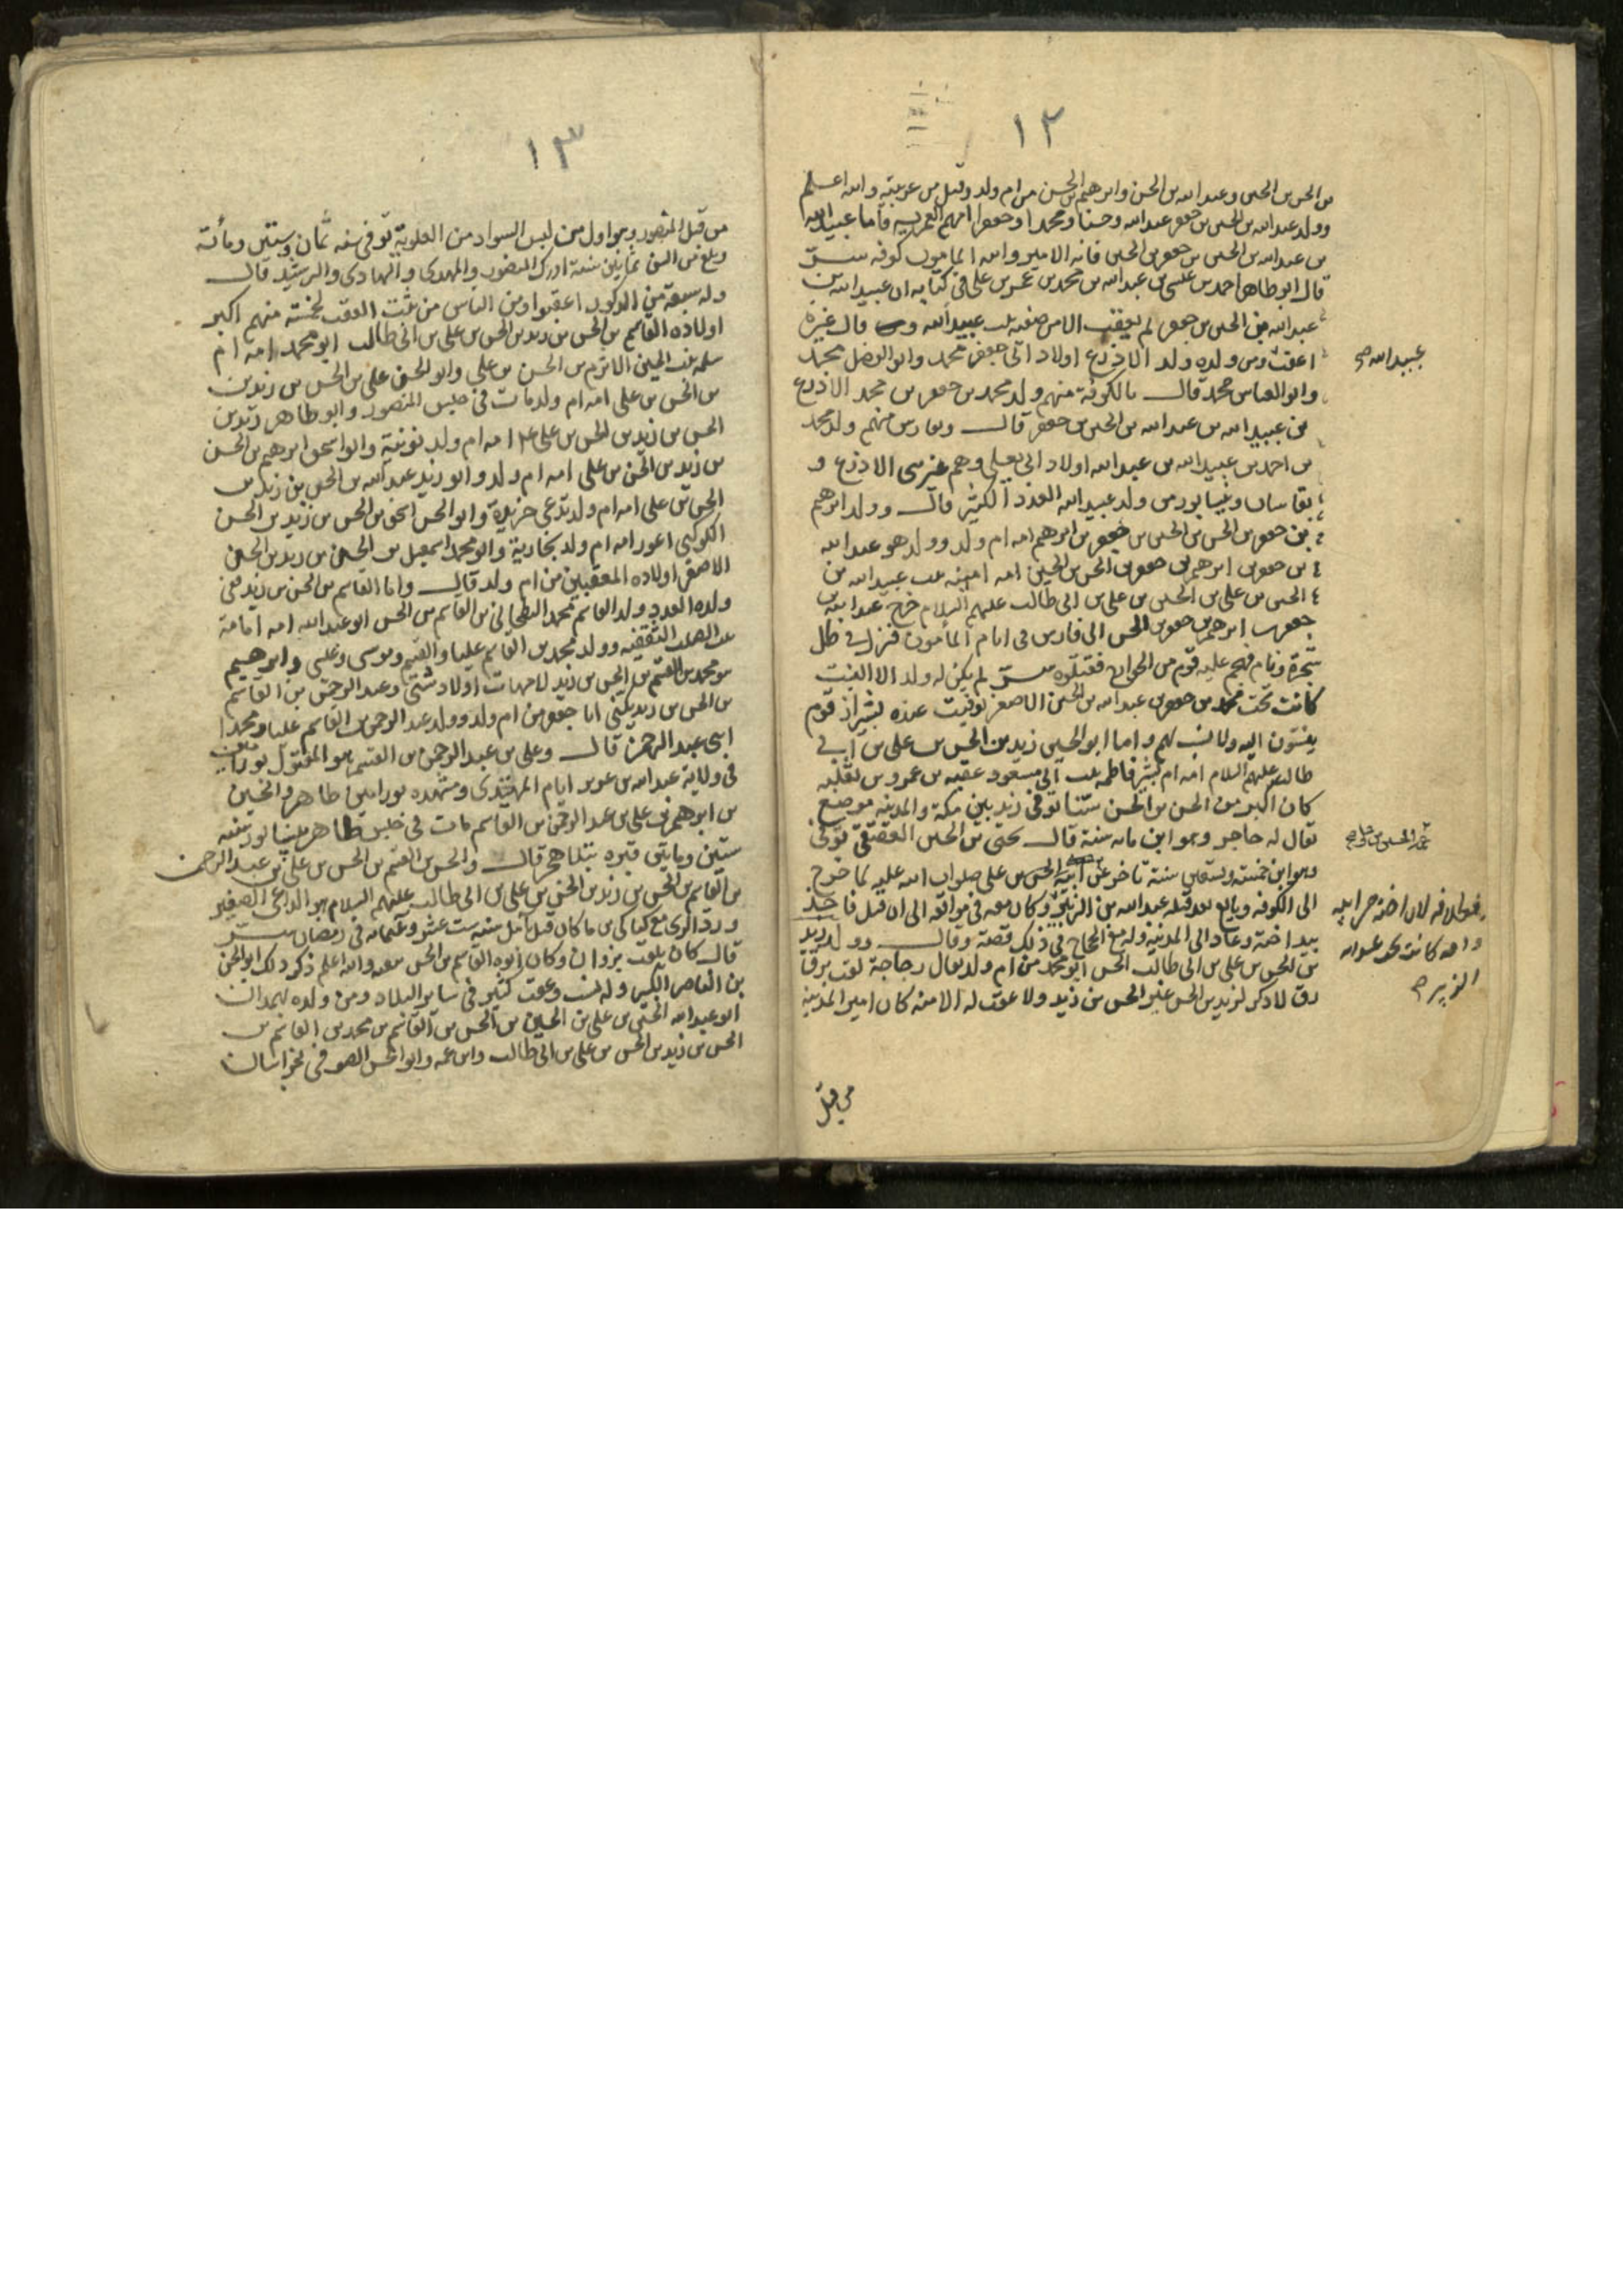 ١٢
بن الحسن بن الحسن وعبد الله بن الحسن وابرهيم بن الحسن من ام ولد وقيل من عربية والله اعلم
وولد عبد الله بن الحسن بن جعفر عبد الله وحسنا ومحمدا وجعفرا امهم العمرية فاما عبيد الله
بن عبد الله بن الحسن بن جعفر بن الحسن فانه الامير ولاه المامون كوفه
قال ابو طاهر احمد بن عيسى بن عبد الله بن محمد بن عمر بن على فى كتابه ان عبيد الله بن
عبد الله بن الحسن بن جعفر لم يعقب الا من صفيه بنت عبيد الله قال غيره
اعقب ومن ولده ولد الادرع اولاد ابى جعفر محمد وابو الفضل محمد
وابو العباس محمد قال بالكوفة منهم ولد محمد بن جعفر بن محمد الادرع
بن عبيد الله بن عبد الله بن الحسن بن جعفر قال وبفارس منهم ولد محمد
بن احمد بن عبيد الله بن عبد الله اولاد ابى يعلى وهم غير بنى الادرع و
بقاسان ونيسابور من ولد عبيد الله العدد الكثير قال وولد ابرهيم
بن جعفر بن الحسن بن الحسن بن جعفر بن ابرهيم امه ام ولد وولد هو عبد الله
بن جعفر بن ابرهيم بن جعفر بن الحسن بن الحسن امه امينه بنت عبيد الله بن
الحسين بن على بن الحسين بن على بن ابى طالب عليهم السلام خرج عبد الله بن
جعفر بن ابرهيم بن جعفر بن الحسن الى فارس فى ايام المأمون فنزل فى ظل
شجرة ونام فهجم عليه قوم من الخوارج فقتلوه لم يكن له ولد الا البنت
كانت تحت محمد بن جعفر بن عبد الله بن الحسين الاصغر توفيت عنده بشيراز قوم
ينتمون اليه ولا نسب لهم واما ابو الحسن زيد بن الحسن بن على بن ابى
طالب عليهم السلام امه ام بشير فاطمة بنت ابى مسعود عقبه بن عمرو بن ثعلبه
كان اكبر من الحسن بن الحسن سنا توفى زيد بين مكة والمدينه موضع
يقال له حاجر وهو ابن مائه سنة قال يحيى بن الحسن العقيقى توفى
وهو ابن خمسة وتسعين سنة تأخر عن الحسن بن على صلوات الله عليه لما خرج
الى الكوفه وبايع بعد قتله عبد الله بن الزبير وكان معه فى مواقعه الى ان قتل فاخذ
بيد اخته وعاد الى المدينة وله مع الحجاج فى ذلك قصة وقال وولد زيد
بن الحسن بن على بن ابى طالب الحسن ابو محمد من ام ولد يقال زجاجة لقب برقا
رق لا ذكر لزيد بن الحسن غير الحسن بن زيد ولا عقب له الا منه كان امير المدينة
من قبل
عبيد الله
لان اخته
وامه كانت تحت عبد الله
الزبير
١٣
من قبل المنصور وهو اول من لبس السواد من العلوية توفى سنه ثمان وستين ومائة
وبلغ من السن ثمانين سنة ادرك المنصور والمهدى والهادى والرشيد قال
وله سبعة من الذكور اعقبوا ومن الناس من يثبت العقب لخمسة منهم اكبر
اولاده القاسم بن الحسن بن زيد بن الحسن بن على بن ابى طالب ابو محمد امه ام
سلمه بنت الحسين الاثرم بن الحسن بن على وابو الحسن على بن الحسن بن زيد بن
بن الحسن بن على امه ام ولد مات فى حبس المنصور وابو طاهر زيد بن
الحسن بن زيد بن الحسن بن على امه ام ولد نوبية وابو اسحق ابرهيم بن الحسن
بن زيد بن الحسن بن على امه ام ولد وابو زيد عبد الله بن الحسن بن زيد بن
الحسن بن على امه ام ولد تدعى خريدة وابو الحسن اسحق بن الحسن بن زيد بن الحسن
الكوكبى اعور امه ام ولد بخارية وابو محمد اسمعيل بن الحسن بن زيد بن الحسن
الاصغر اولاده المعقبين من ام ولد قال واما القاسم بن الحسن بن زيد ففى
ولده العدد ولد القاسم محمد البطحانى بن القاسم بن الحسن ابو عبد الله امه امامة
بنت الصلت الثقفيه وولد محمد بن القاسم عليا والقسم وموسى وعيسى وابرهيم
بنو محمد بن القسم بن الحسن بن زيد لامهات اولاد شتى وعبد الرحمن بن القاسم
بن الحسن بن زيد يكنى ابا جعفر من ام ولد وولد عبد الرحمن بن القاسم عليا ومحمدا
ابنى عبد الرحمن قال وعلى بن عبد الرحمن بن القسم هو المقتول بورامين
فى ولاية عبد الله بن عزيز ايام المهتدى ومشهده بورامين ظاهر والحسين
بن ابرهيم بن على بن عبد الرحمن بن القاسم مات فى حبس طاهر بنيسابور سنه
ستين ومايتين قبره قال والحسن بن القسم بن الحسن بن على بن عبد الرحمن
بن القاسم بن الحسن بن زيد بن الحسن بن على بن ابى طالب عليهم السلام هو الداعى الصغير
ورد الرى مع ماكان بن كاكى قتل بآمل سنه ست عشر وثلثمائه فى رمضان
قال كان يلقب وكان ابوه القاسم بن الحسن معه والله اعلم ذكر ذلك ابو الحسن
بن الناصر الكبير وله نسب وعقب كثير فى سائر البلاد ومن ولده بهمدان
ابو عبد الله الحسين بن على بن الحسين بن الحسن بن القاسم بن محمد بن القاسم بن
الحسن بن زيد بن الحسن بن على بن ابى طالب وابن عمه وابو الحسن الصوفى بخراسان